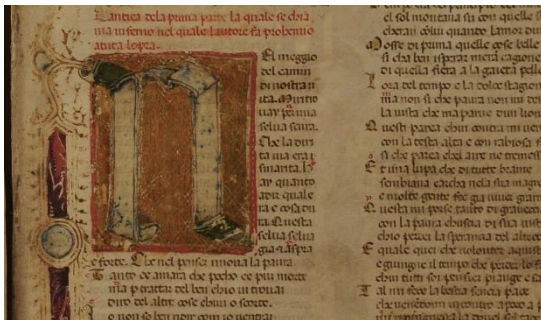 Cantica dela prima parte la quale se chia
ma inferno nel quale lautore fa prohemio
atuta lopra.
El meggio
del camin
di nostra ui
ta. Mi ritro
uay per una
selua scura.
Che la diri
ta uia era s
maritta.
ay quanto
adir quale
era e cosa du
ra. Questa
selua selua
gia & aspra
e forte. Che nel penser rinoua la paura
Tanto ce amara che pocho ce piu morte
ma p tratar del ben chio ui trouai
diro del altre cose chiui o scorte.
o non so ben ridir com io uentrai
el sol montaua su con quelle s
cheran colui quando lamor diui
Mosse di prima quelle cose belle
si cha ben isperar mera cagione
di quella fiera a la gaieta pelle
Lora del tempo e la dolce stagion
ma non si che paura non mi des
la uista che maparue dun lion
Questi parea chun contra mi uen
con la testa alta e con rabiosa f
si che parea chel aire ne tremess
Et una lupa che di tutte brame
sembiaua carcha nela sua magre
e molte gente fce gia uiuer gram
Questa mi porse tanto di grauecca
con la paura chuscia di sua uist
chio perei la speranza del altecc
E quale quei che uolontier aquist
e giungie il tempo che perder lo f
chin tutti soi pensier piange e sa
Tal mi fece la bestia senza pace
che uenendomi incontro a poco a p